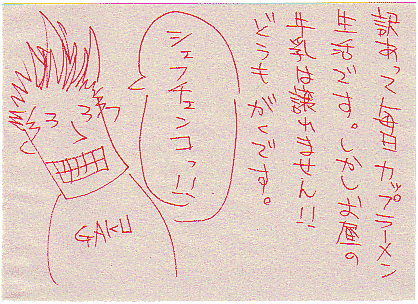 訳あって毎日カップラーメン
生活です。しかしお昼の
牛乳は譲れません!!
どうも がくです。
シェフチェンコっ!!
GAKE